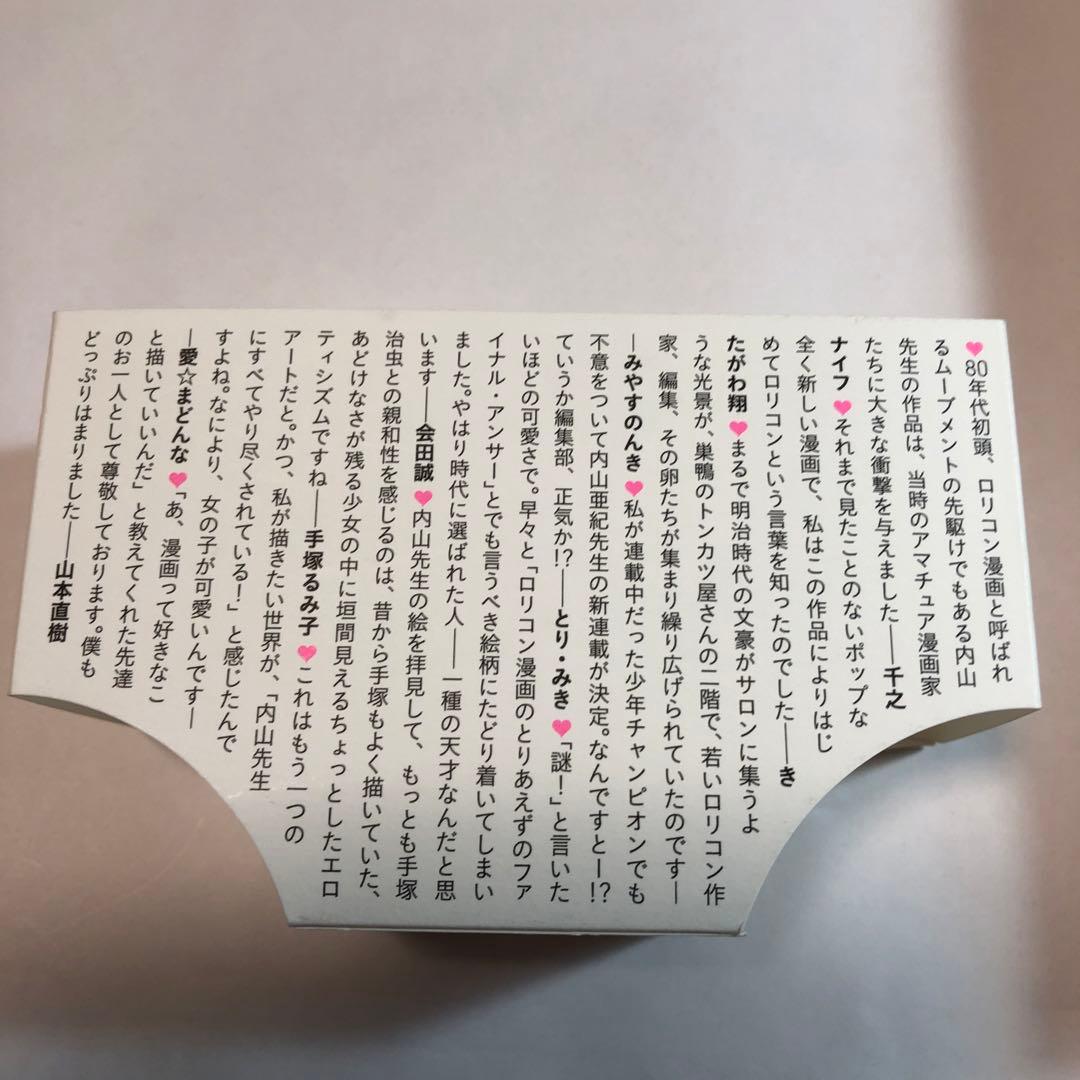 ♥80年代初頭、ロリコン漫画と呼ばれ
るムーブメントの先駆けでもある内山
先生の作品は、当時のアマチュア漫画家
たちに大きな衝撃を与えました——千之
ナイフ♥それまで見たことのないポップな
全く新しい漫画で、私はこの作品によりはじ
めてロリコンという言葉を知ったのでした——き
たがわ翔♥まるで明治時代の文豪がサロンに集うよ
うな光景が、巣鴨のトンカツ屋さんの二階で、若いロリコン作
家、編集、その卵たちが集まり繰り広げられていたのです—
—みやすのんき♥私が連載中だった少年チャンピオンでも
不意をついて内山亜紀先生の新連載が決定。なんですとー!?
ていうか編集部、正気か!?——とり・みき♥「謎！」と言いた
いほどの可愛さで。早々と「ロリコン漫画のとりあえずのファ
イナル・アンサー」とでも言うべき絵柄にたどり着いてしまい
ました。やはり時代に選ばれた人——一種の天才なんだと思
います——会田誠♥内山先生の絵を拝見して、もっとも手塚
治虫との親和性を感じるのは、昔から手塚もよく描いていた、
あどけなさが残る少女の中に垣間見えるちょっとしたエロ
ティシズムですね——手塚るみ子♥これはもう一つの
アートだと。かつ、私が描きたい世界が、「内山先生
にすべてやり尽くされている！」と感じたんで
すよね。なにより、女の子が可愛いんです—
—愛☆まどんな♥「あ、漫画って好きなこ
と描いていいんだ」と教えてくれた先達
のお一人として尊敬しております。僕も
どっぷりはまりました——山本直樹